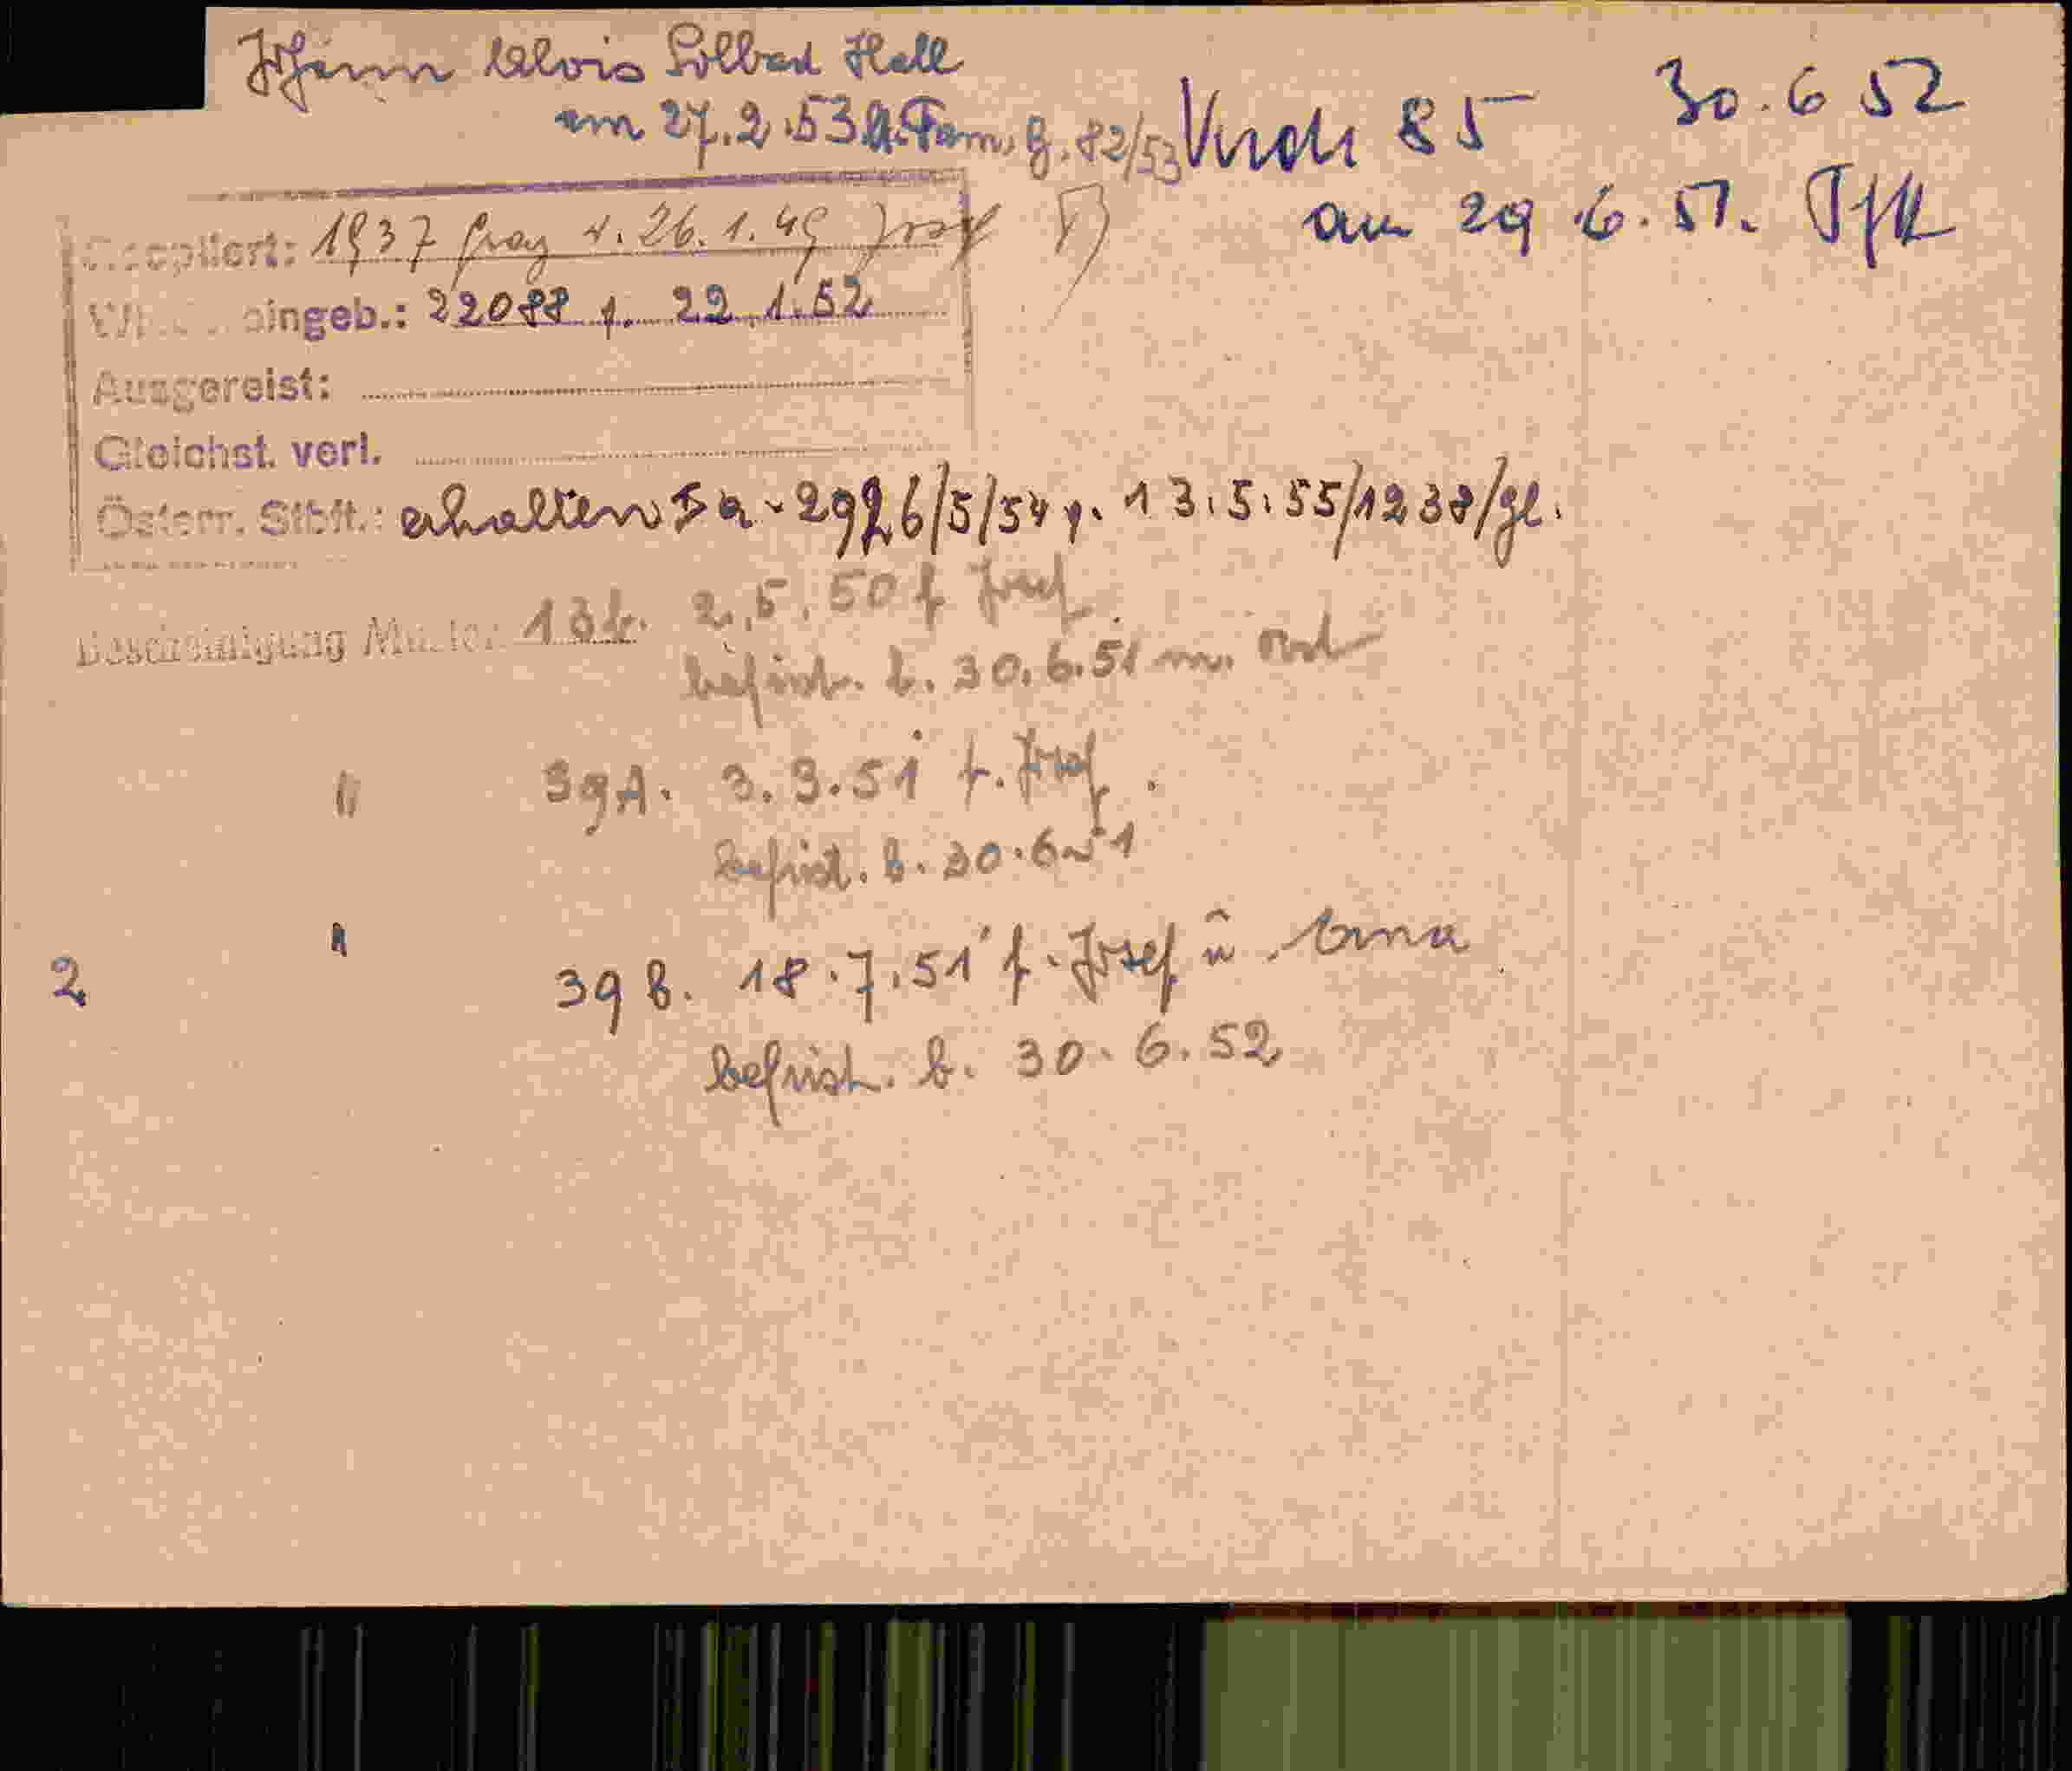 Johann Alois Solbad Hall
am 27.2.53 A. Fam. G. 82/53
30.6 52
85
am 29.6.51.
1937 Graz v. 26.1.49 Josef
eingeb.: 22088 v. 22.1.52
Ausgereist:
Gleichst. verl.
Österr. Stbft.: erhalten Ia-2926/5/54 v. 13.5.55/1238/gl.
Bescheinigung Muster 13b. 2.5.50 f Josef
befrist. b. 30.6.51 m.
" 39A. 3.3.51 f. Josef.
befrist. b. 30.6.51
2 " 39 B. 18.7.51 f. Josef u.
befrist. b. 30.6.52